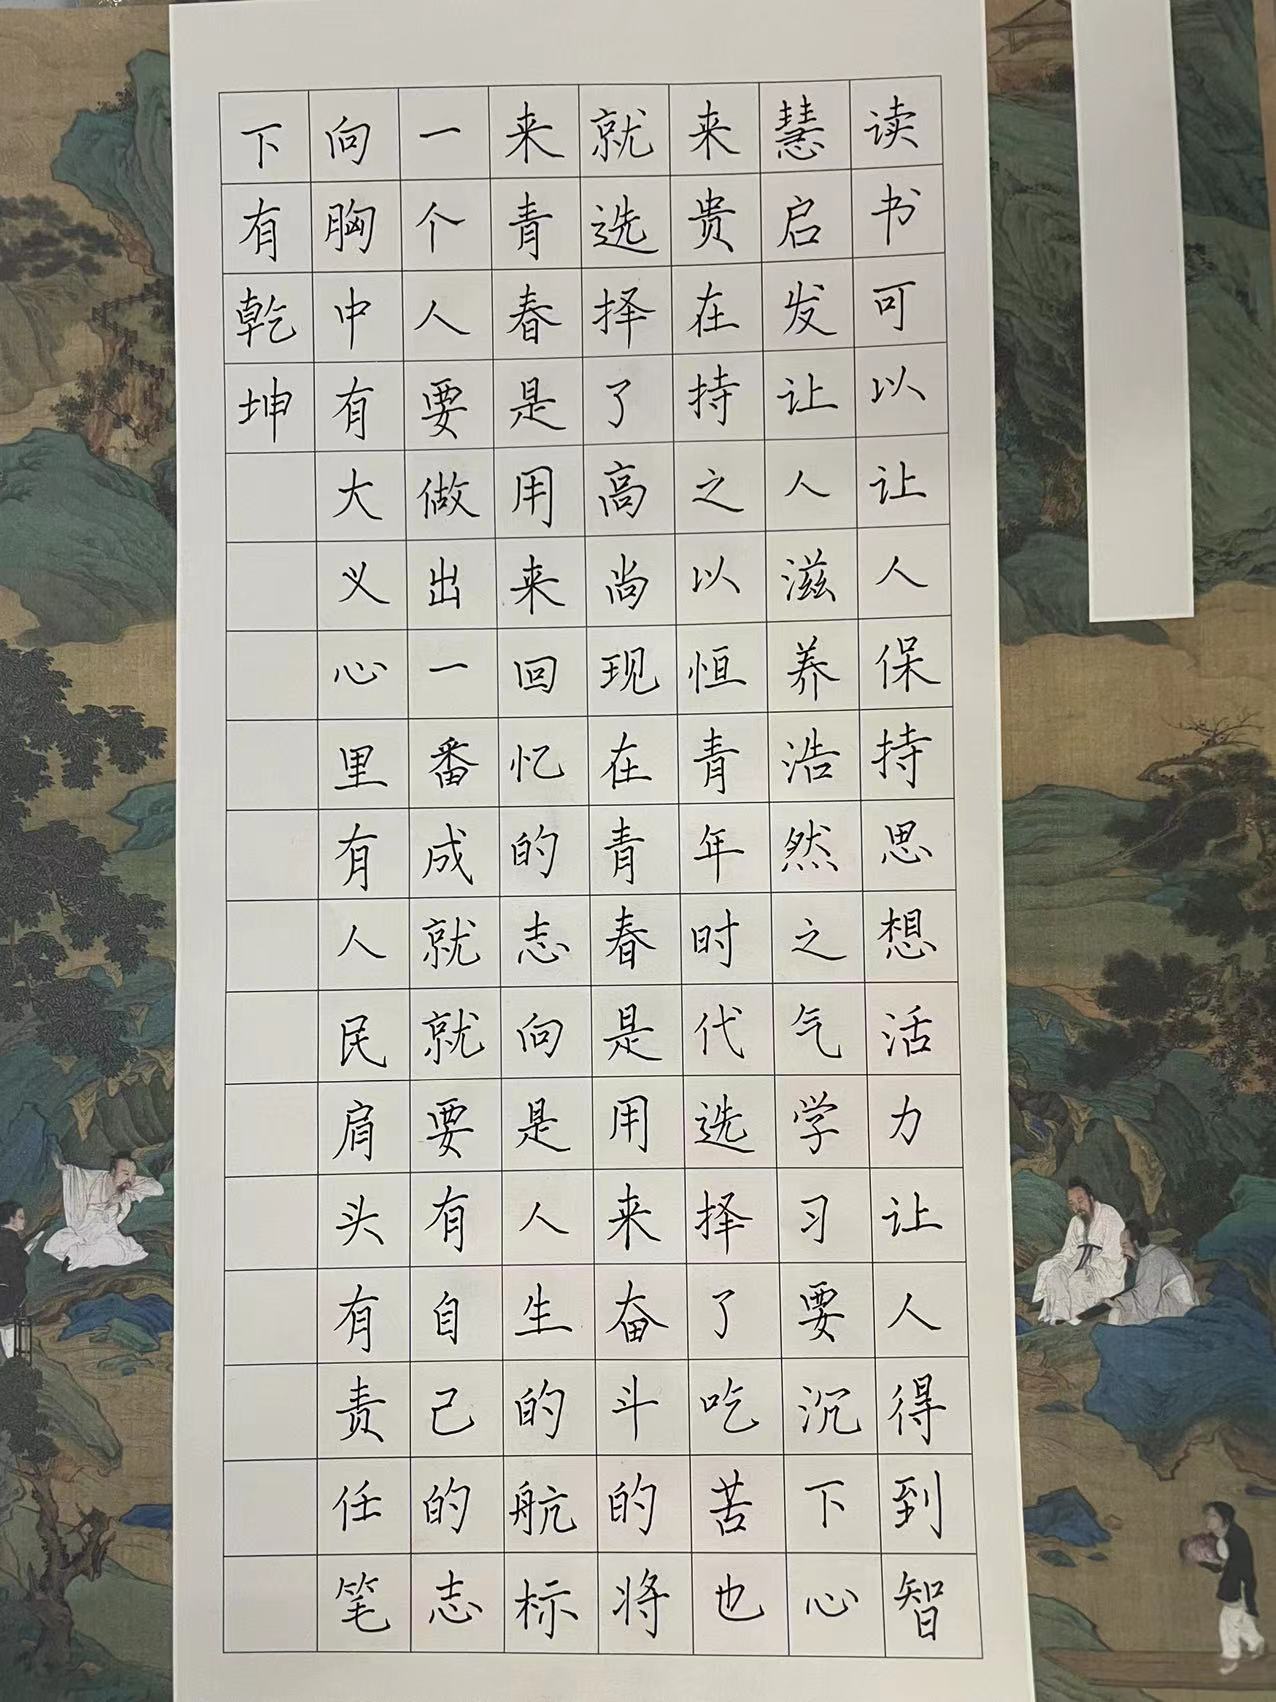 读书可以让人保持思想活力让人得到智
慧启发让人滋养浩然之气学习要沉下心
来贵在持之以恒青年时代选择了吃苦也
就选择了高尚现在青春是用来奋斗的将
来青春是用来回忆的志向是人生的航标
一个人要做出一番成就就要有自己的志
向胸中有大义心里有人民肩头有责任笔
下有乾坤